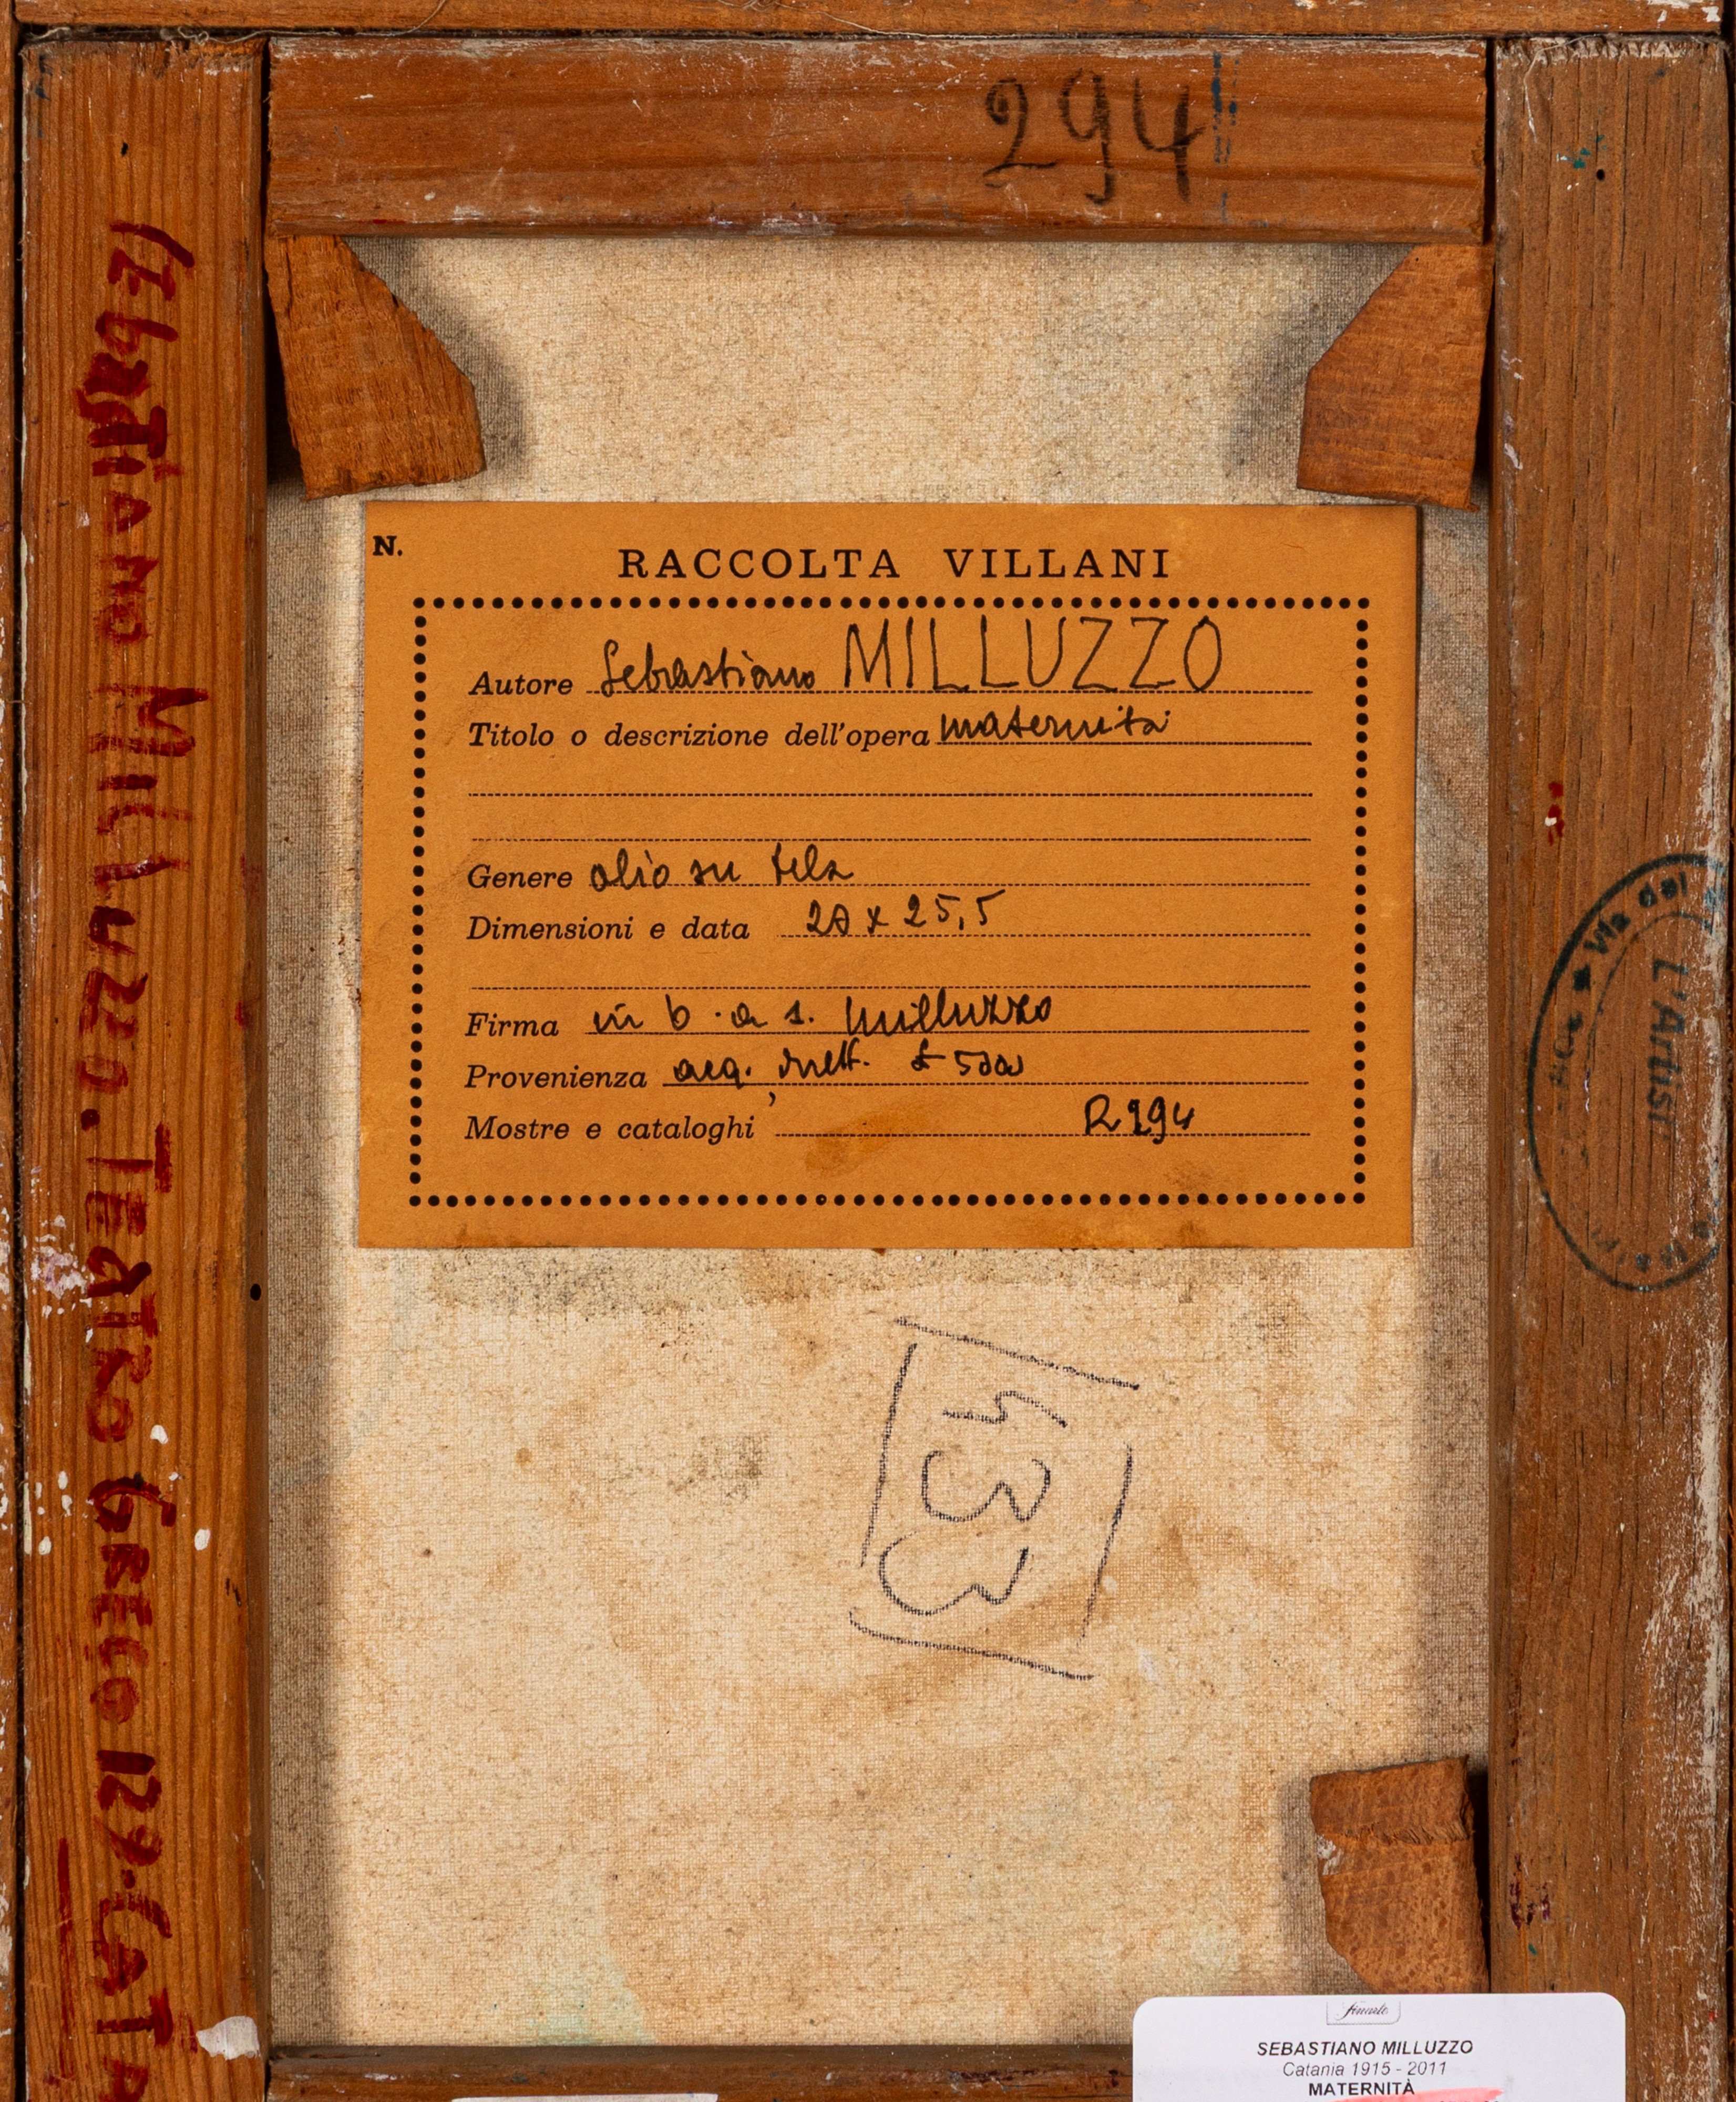 294
Sebastiano Milluzzo. TEATRO GRECO 129. CAT
N.
RACCOLTA VILLANI
Autore Sebastiano MILLUZZO
Titolo o descrizione dell'opera maternità
Genere olio su tela
Dimensioni e data 20 x 25,5
Firma in b. a s. Milluzzo
Provenienza acq. dirett. £ 5000
Mostre e cataloghi R294
Via del
L'Artist
finarte
SEBASTIANO MILLUZZO
Catania 1915 - 2011
MATERNITÀ